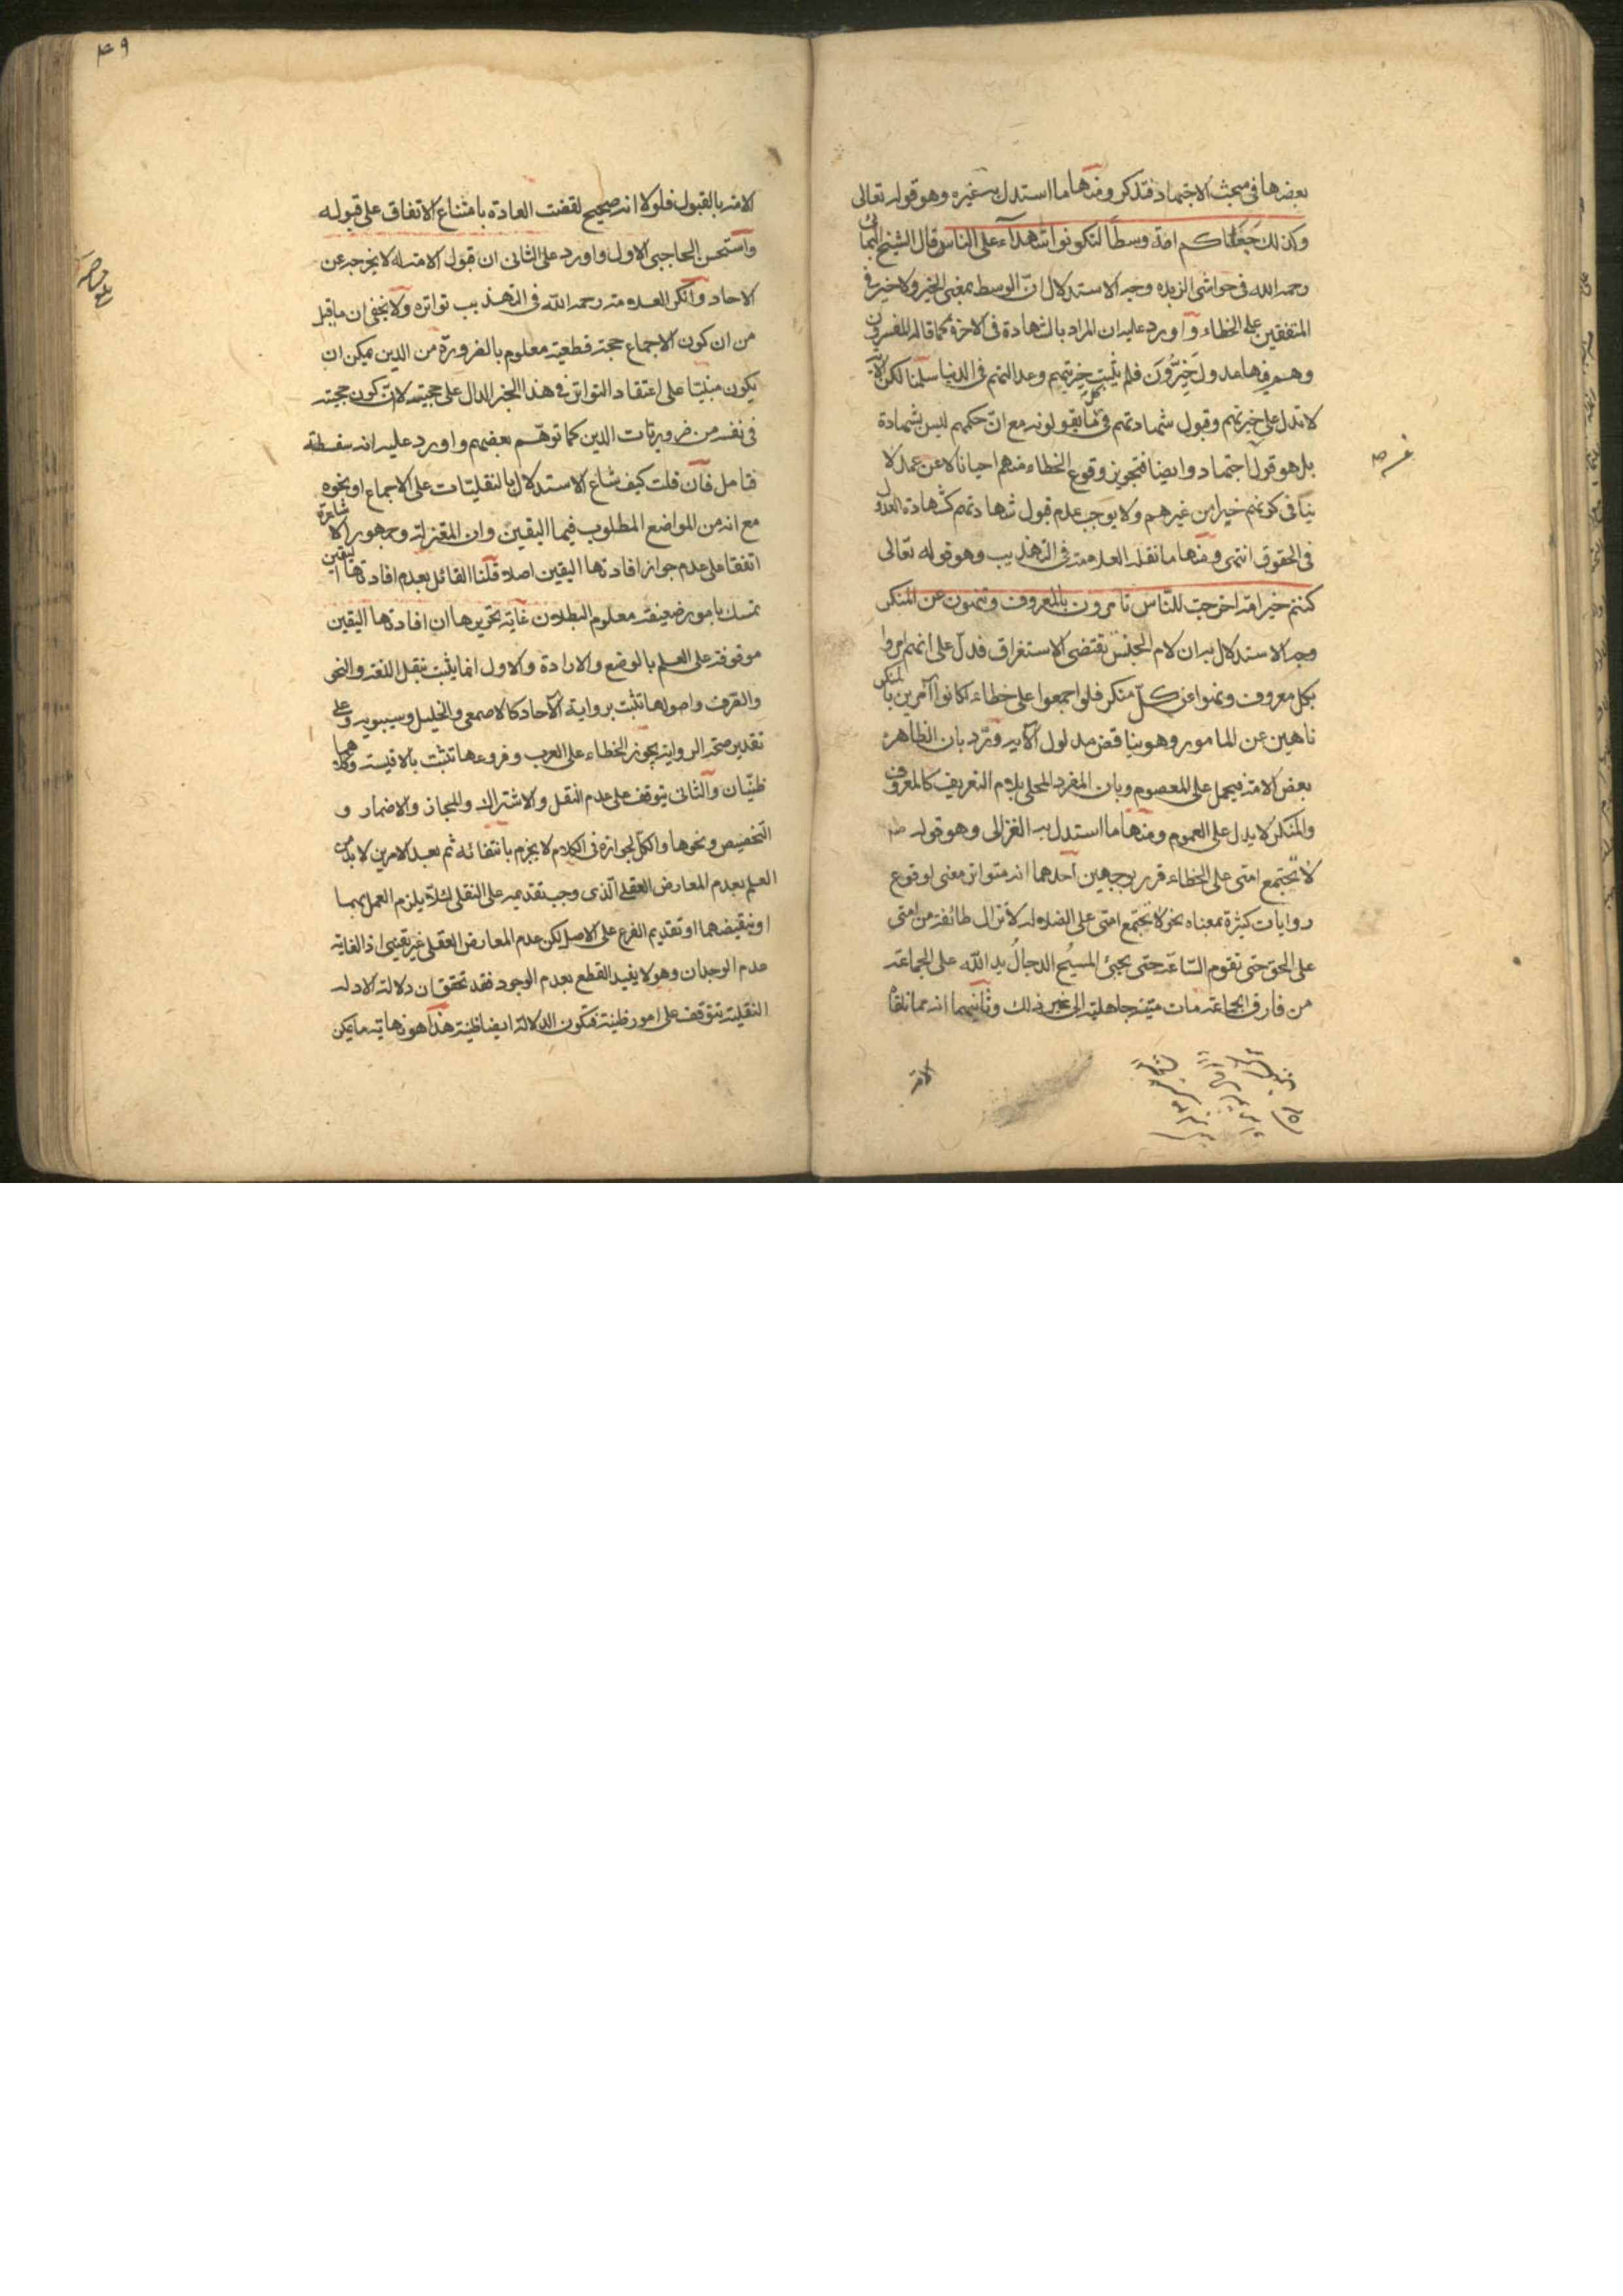 بعضها فى مبحث الاجتهاد فتذكر ومنها ما استدل به غيره وهو قوله تعالى
وكذلك جعلناكم امة وسطا لتكونوا شهدآء على الناس قال الشيخ البهائى
رحمه الله فى حواشى الزبده وجه الاستدلال انّ الوسط بمعنى الخير ولا خير فى
المتفقين على الخطاء واورد عليه ان المراد بالشهادة فى الاخرة كما قاله المفسرون
وهم فيها عدول خيّرون فلم يثبت خيريتهم وعدالتهم فى الدنيا سلمنا لكن الاية
لا تدل على خيريتهم وقبول شهادتهم فى كل ما يقولونه مع انّ حكمهم ليس بشهادة
بل هو قول اجتهاد وايضا فتجويز وقوع الخطاء منهم احيانا لا عن عمد لا
ينافى كونهم خيرا من غيرهم ولا يوجب عدم قبول شهادتهم كشهادة العدول
فى الحقوق انتهى ومنها ما نقله العلامة فى التهذيب وهو قوله تعالى
كنتم خير امة اخرجت للنّاس تامرون بالمعروف وتنهون عن المنكر
وجه الاستدلال به ان لام الجنس يقتضى الاستغراق فدلّ على انهم امروا
بكل معروف ونهوا عن كلّ منكر فلو اجمعوا على خطاء لكانوا آمرين بالمنكر
ناهين عن المامور وهو يناقض مدلول الآية وتردّ بان الظاهر
بعض الامة فيحمل على المعصوم وبان المفرد المحلى بلام التعريف كالمعروف
والمنكر لا يدل على العموم ومنها ما استدل به الغزالى وهو قوله ص
لا تجتمع امتى على الخطاء قرر بوجهين احدهما انه متواتر معنى لوقوع
روايات كثيرة بمعناه نحو لا تجتمع امتى على الضلالة لا تزال طائفة من امتى
على الحق حتى تقوم السّاعة حتى يجيئ المسيح الدجال يد اللّه على الجماعة
من فارق الجماعة مات ميتة جاهلية الى غير ذلك وثانيهما انه مما تلقاه
الامة
٤٩
الامة بالقبول فلولا انه صحيح لقضت العادة بامتناع الاتفاق على قبوله
واستحسن الحاجبى الاول واورد على الثانى ان قبول الامة له لا يخرجه عن
الاحاد وانكر العلامة رحمه اللّه فى التهذيب تواتره ولا يخفى ان ما قيل
من ان كون الاجماع حجة قطعية معلوم بالضرورة من الدين يمكن ان
يكون مبنيّا على اعتقاد التواتر فى هذا الخبر الدال على حجيته لا انّ كون حجية
فى نفسه من ضروريّات الدين كما توهّم بعضهم واورد عليه انه سفسطة
فتامل فان قلت كيف شاع الاستدلال بالنقليّات على الاجماع او نحوه
مع انه من المواضع المطلوب فيها اليقين وان المعتزلة وجمهور الاشاعرة
اتفقا على عدم جواز افادتها اليقين اصلا قلنا القائل بعدم افادتها اليقين
تمسك بامور ضعيفة معلوم البطلان غاية تحريرها ان افادتها اليقين
موقوفة على العلم بالوضع والارادة والاول انما يثبت بنقل اللغة والنحو
والصّرف واصولها تثبت برواية الآحاد كالاصمعى والخليل وسيبويه وعلى
تقدير صحة الرواية يجوز الخطاء على العرب وفروعها تثبت بالاقيسة وكلاهما
ظنيّان والثانى يتوقف على عدم النقل والاشتراك والمجاز والاضمار و
التخصيص ونحوها والكل لجوازه فى الكلام لا يجزم بانتفائه ثم بعد الامرين لا بد من
العلم بعدم المعارض العقلى الّذى وجب تقديمه على النقلى لئلّا يلزم العمل بهما
او بنقيضهما او تقديم الفرع على الاصل لكن عدم المعارض العقلى غير يقينى اذ الغاية
عدم الوجدان وهو لا يفيد القطع بعدم الوجود فقد تحقق ان دلالة الادلة
النقلية تتوقف على امور ظنية فتكون الدلالة ايضا ظنية هذا هو نهاية ما يمكن